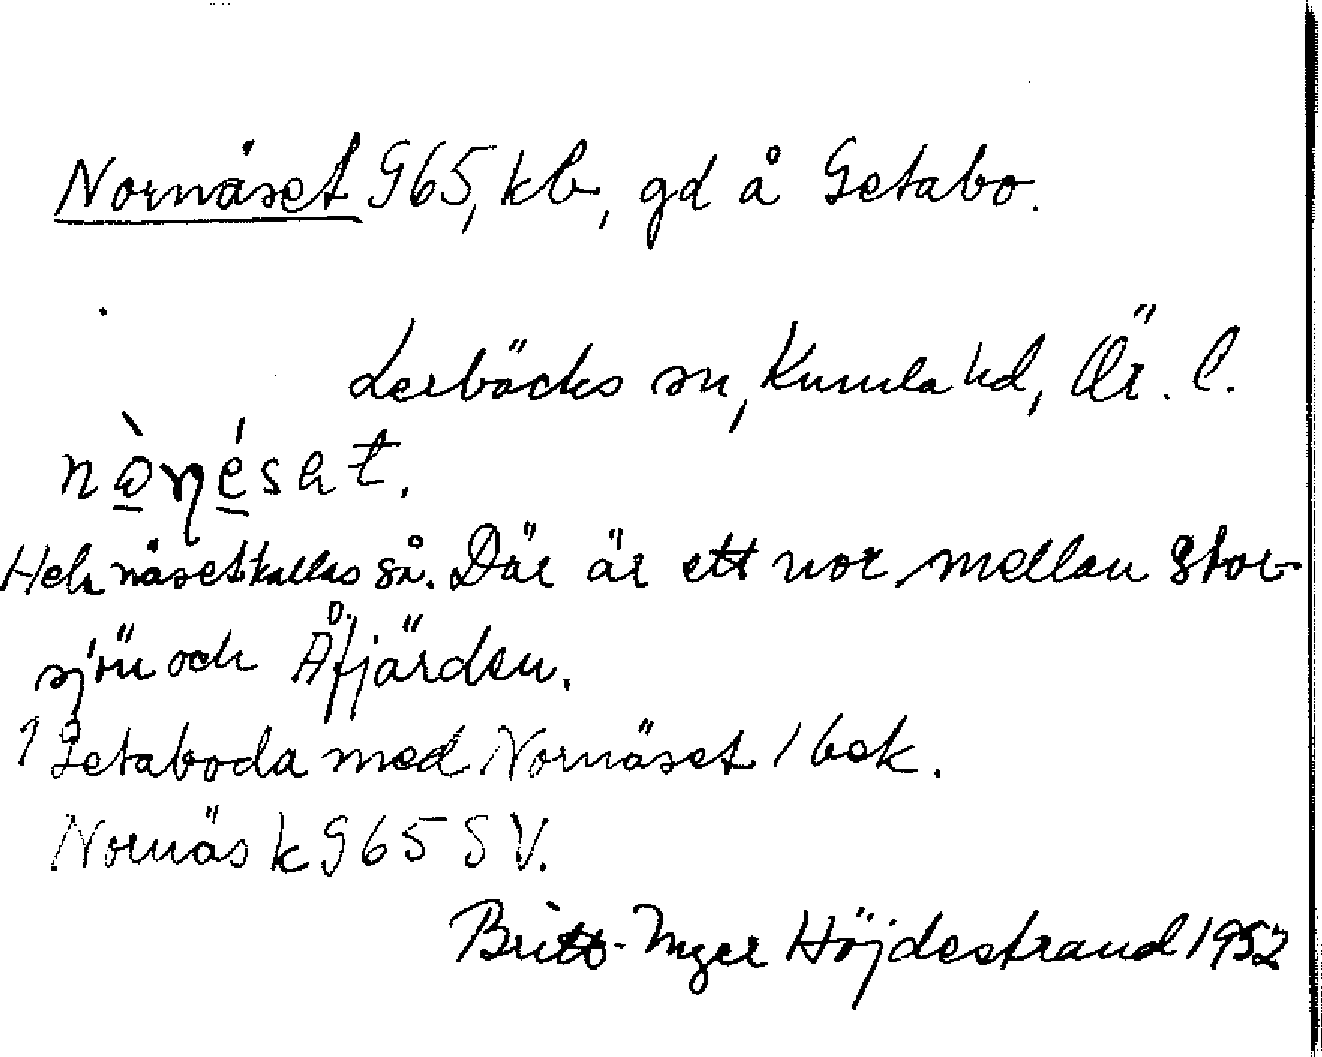 Nornäset G65, kb, gd å Getabo.
Lerbäcks sn, Kumla hd, Ör. l.
Hela näset kallas så. Där är ett nor mellan Stor-
sjön och Åfjärden.
1 Getaboda med Nornäset / bek.
Nornäs k G65 SV.
Britt-Inger Höjdestrand 1952